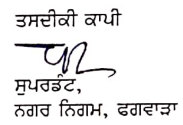 ਤਸਦੀਕੀ ਕਾਪੀ
ਸੁਪਰਡੰਟ,
ਨਗਰ ਨਿਗਮ, ਫਗਵਾੜਾ